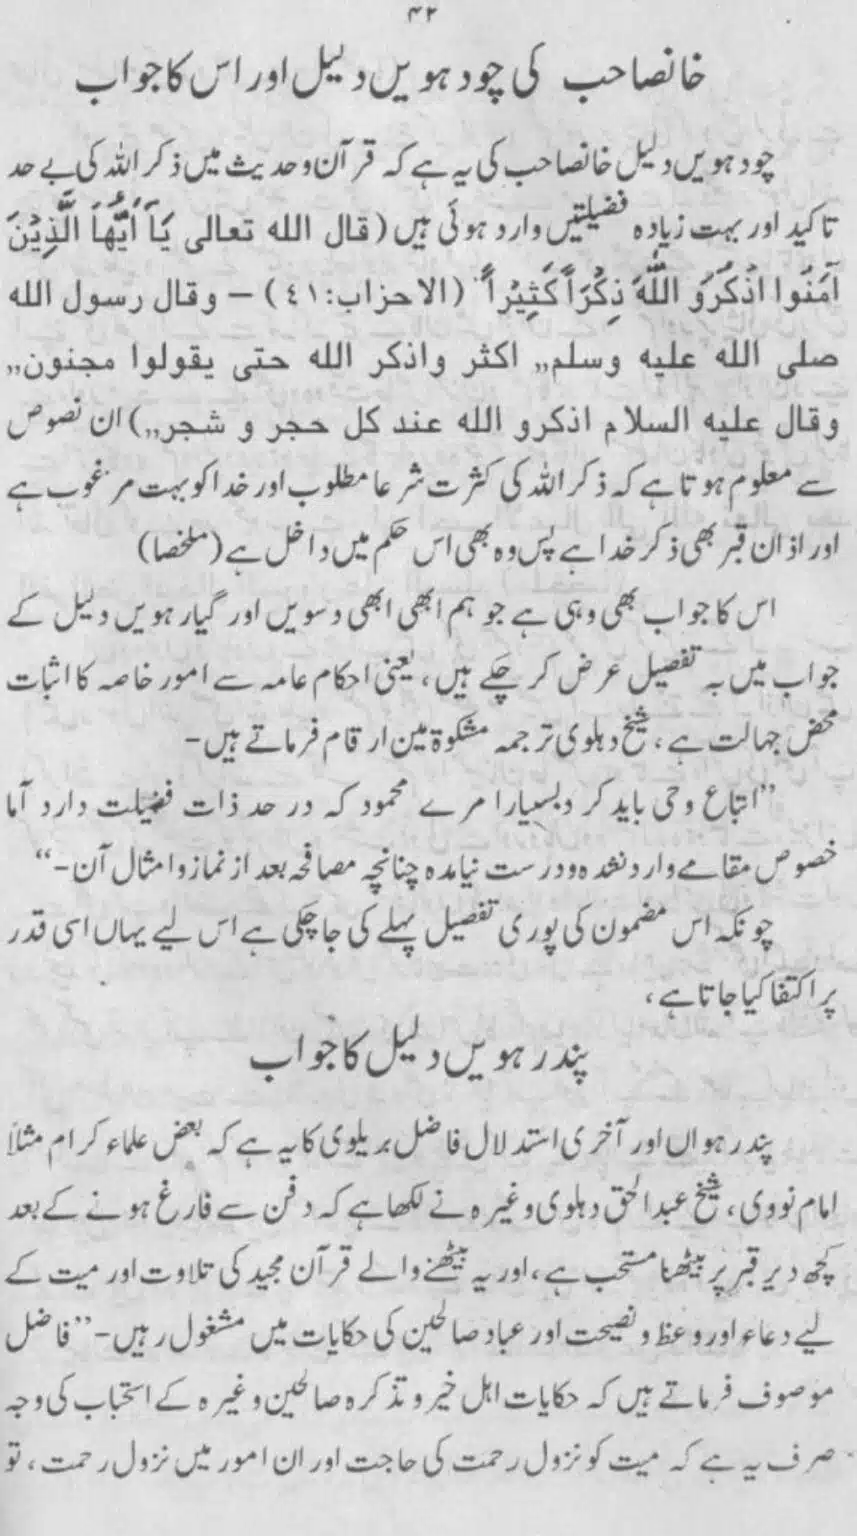 ۴۲
خانصاحب کی چودہویں دلیل اور اس کا جواب
چودہویں دلیل خانصاحب کی یہ ہے کہ قرآن وحدیث میں ذکر اللہ کی بے حد
تاکید اور بہت زیادہ فضیلتیں وارد ہوئی ہیں (قال الله تعالى يَا اَيُّهاَ الَّذِيْنَ
آمَنُوا اذْكُرُو اللّٰهَ ذِكْرَاً كَثِيْراً (الاحزاب:٤١) – وقال رسول الله
صلى الله عليه وسلم,, اكثر واذكر الله حتى يقولوا مجنون,,
وقال عليه السلام اذكرو الله عند كل حجر و شجر,,) ان نصوص
سے معلوم ہوتا ہے کہ ذکر اللہ کی کثرت شرعا مطلوب اور خدا کو بہت مرغوب ہے
اور اذان قبر بھی ذکر خدا ہے پس وہ بھی اس حکم میں داخل ہے (ملخصا)
اس کا جواب بھی وہی ہے جو ہم ابھی ابھی دسویں اور گیارہویں دلیل کے
جواب میں بہ تفصیل عرض کر چکے ہیں، یعنی احکام عامہ سے امور خاصہ کا اثبات
محض جہالت ہے، شیخ دہلوی ترجمہ مشکوۃ مین ارقام فرماتے ہیں-
”اتباع وحی باید کرد بسیارا مرے محمود کہ در حد ذات فضیلت دارد آما
خصوص مقامے وارد نشدہ و درست نیامدہ چنانچہ مصافحہ بعد از نماز و امثال آن-“
چونکہ اس مضمون کی پوری تفصیل پہلے کی جاچکی ہے اس لیے یہاں اسی قدر
پر اکتفا کیا جاتا ہے،
پندرہویں دلیل کا جواب
پندرہواں اور آخری استدلال فاضل بریلوی کا یہ ہے کہ بعض علماء کرام مثلاً
امام نووی، شیخ عبدالحق دہلوی وغیرہ نے لکھا ہے کہ دفن سے فارغ ہونے کے بعد
کچھ دیر قبر پر بیٹھنا مستحب ہے، اور یہ بیٹھنے والے قرآن مجید کی تلاوت اور میت کے
لیے دعاء اور وعظ و نصیحت اور عباد صالحین کی حکایات میں مشغول رہیں-”فاضل
موصوف فرماتے ہیں کہ حکایات اہل خیر و تذکرہ صالحین وغیرہ کے استحباب کی وجہ
صرف یہ ہے کہ میت کو نزول رحمت کی حاجت اور ان امور میں نزول رحمت، تو